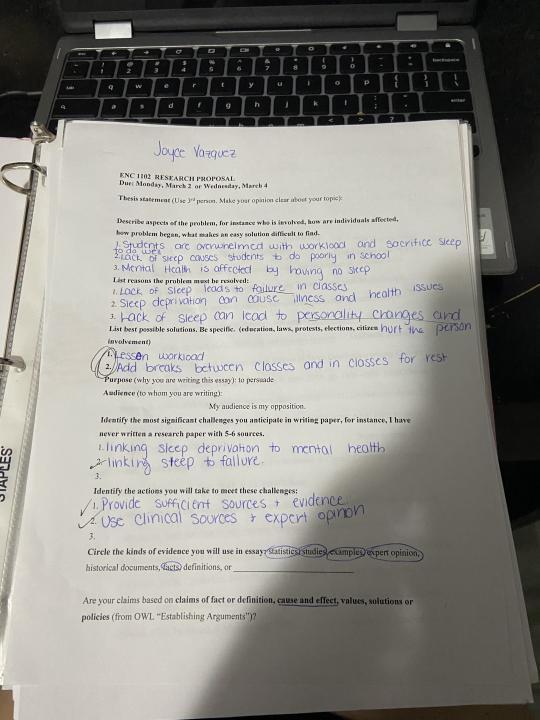 Joyce Vazquez
ENC 1102 RESEARCH PROPOSAL
Due: Monday, March 2 or Wednesday, March 4
Thesis statement (Use 3rd person. Make your opinion clear about your topic):
Describe aspects of the problem, for instance who is involved, how are individuals affected,
how problem began, what makes an easy solution difficult to find.
1. Students are overwhelmed with workload and sacrifice sleep
to do well
2. Lack of sleep causes students to do poorly in school
3. Mental Health is affected by having no sleep
List reasons the problem must be resolved:
1. Lack of sleep leads to failure in classes
2. Sleep deprivation can cause illness and health issues
3. Lack of sleep can lead to personality changes and
List best possible solutions. Be specific. (education, laws, protests, elections, citizen hurt the person
involvement)
1. Lessen workload
2. Add breaks between classes and in classes for rest
Purpose (why you are writing this essay): to persuade
Audience (to whom you are writing):
My audience is my opposition.
Identify the most significant challenges you anticipate in writing paper, for instance, I have
never written a research paper with 5-6 sources.
1. linking sleep deprivation to mental health
2. linking sleep to failure.
3.
Identify the actions you will take to meet these challenges:
1. Provide sufficient sources + evidence
2. Use clinical sources + expert opinion
3.
Circle the kinds of evidence you will use in essay: statistics, studies, examples, expert opinion,
historical documents, facts, definitions, or
Are your claims based on claims of fact or definition, cause and effect, values, solutions or
policies (from OWL "Establishing Arguments")?
STAPLES
backspace
tab
q w e r t y u i o p
enter
a s d f g h j k l